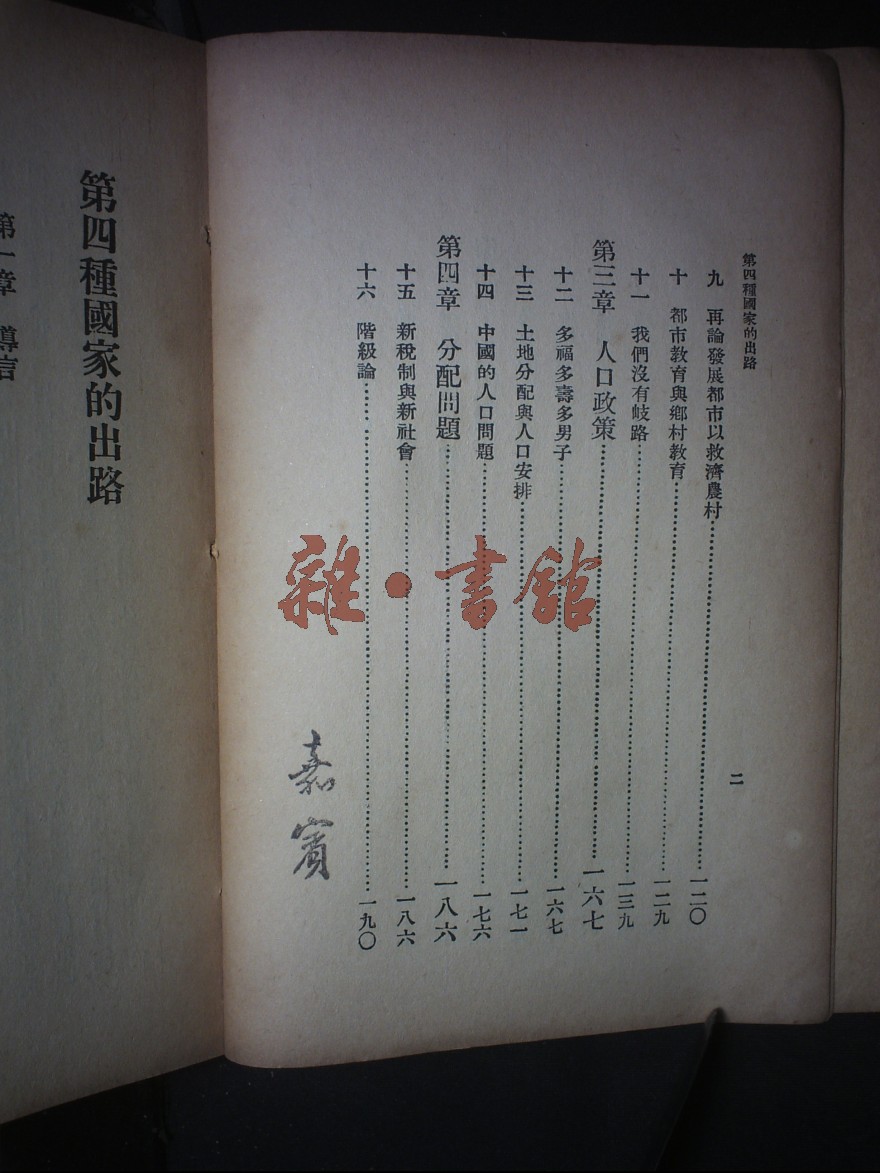 第四種國家的出路
九 再論發展都市以救濟農村……一二〇
十 都市教育與鄉村教育……一二九
十一 我們沒有歧路……一三九
第三章 人口政策……一六七
十二 多福多壽多男子……一六七
十三 土地分配與人口安排……一七一
十四 中國的人口問題……一七六
第四章 分配問題……一八六
十五 新稅制與新社會……一八六
十六 階級論……一九〇
二
嘉賓
雜·書館
第四種國家的出路
第一章 導言